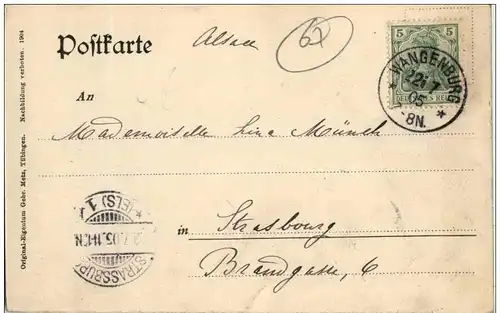 Postkarte
Alsace
67
5 5
DEUTSCHES REICH
* WANGENBURG *
22 7
05
-8N.
An
Mademoiselle Lina Münch
in Strasbourg
Brandgasse, 6
STRASSBURG
(ELS) 1
.7.05.11-12N
Original-Eigentum Gebr. Metz, Tübingen. Nachbildung verboten. 1904